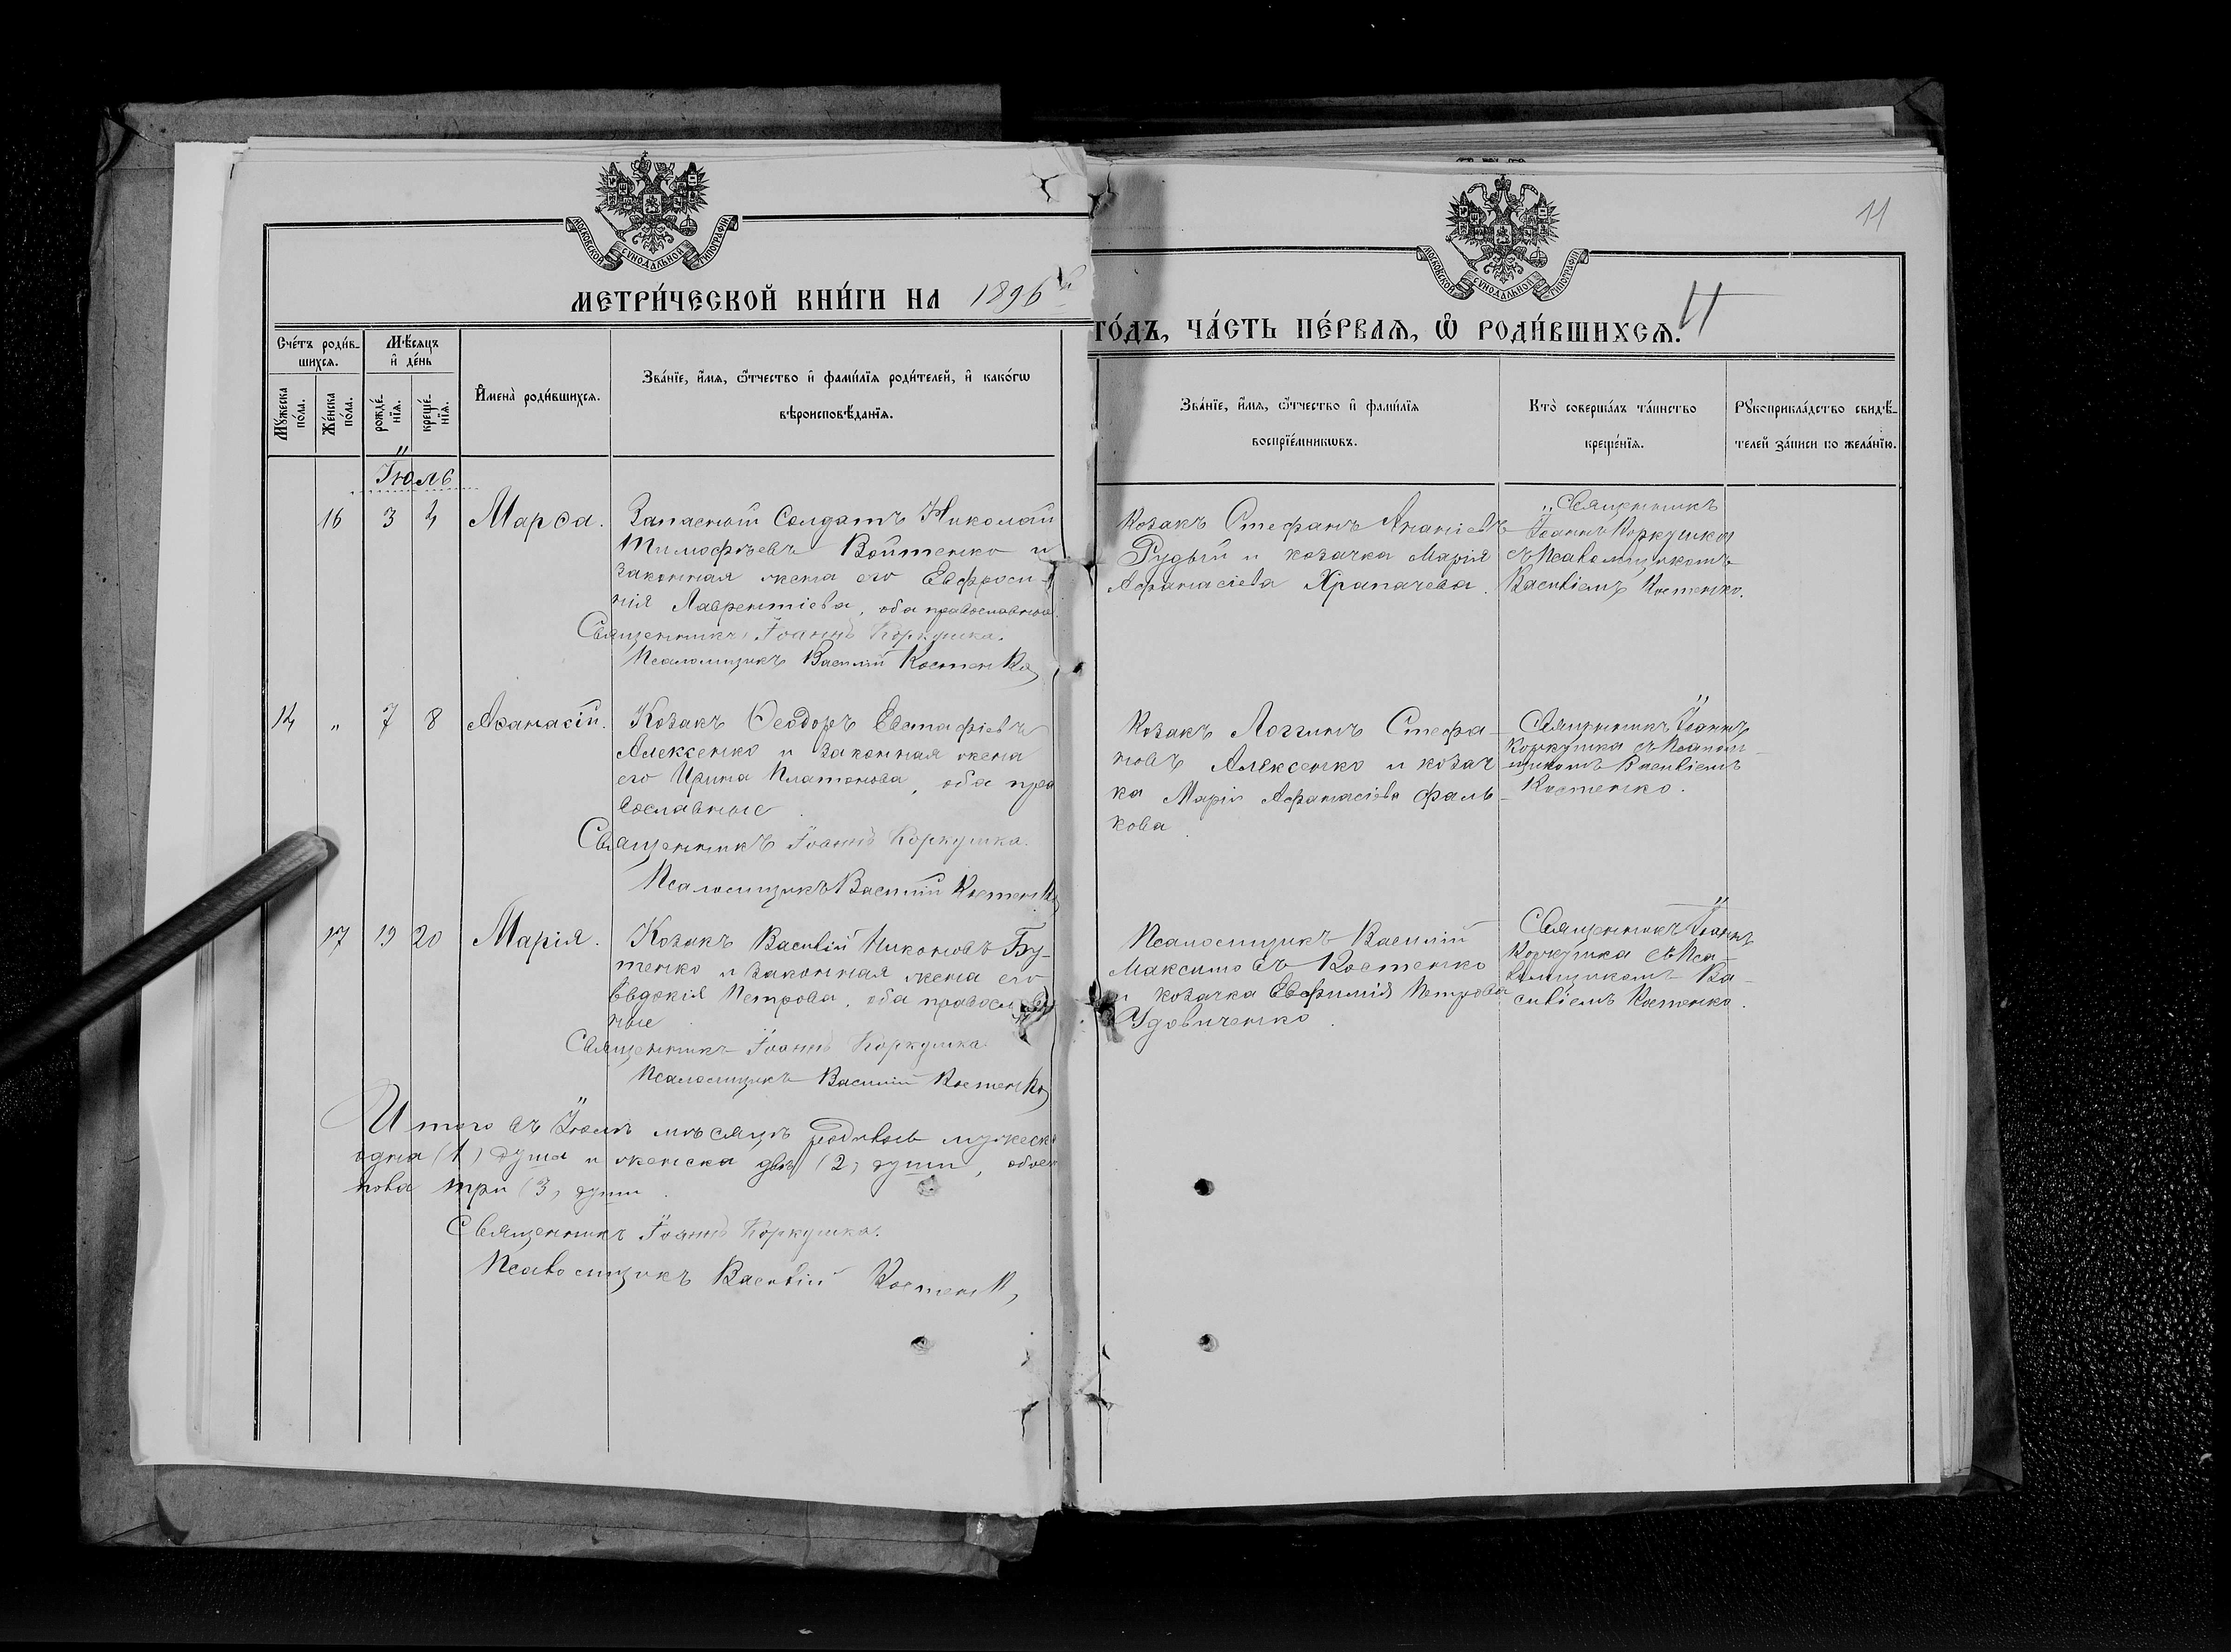 11
МОСКОВСКОЙ СУНОДАЛЬНОЙ ТИПОГРАФІИ
МОСКОВСКОЙ СУНОДАЛЬНОЙ ТИПОГРАФІИ
МЕТРИ́ЧЕСКОЙ КНИ́ГИ НА 1896й
ГО́ДЪ, ЧА́СТЬ ПЕ́РВАѦ, Ѡ РОДИ́ВШИХСѦ. 11
Сче́тъ роди́в-
шихсѧ.
Мꙋжеска по́ла.
Же́нска по́ла.
Мѣ́сѧцъ
и҆ де́нь
рожде́-
нїѧ.
креще́-
нїѧ.
И҆мена̀ роди́вшихсѧ.
Зва́нїе, и҆́мѧ, ѻ҆́тчество и҆ фами́лїѧ роди́телей, и҆ како́гѡ
вѣроисповѣ́данїѧ.
Зва́нїе, и҆́мѧ, ѻ҆́тчество и҆ фами́лїѧ
воспрїе́мникѡвъ.
Кто̀ соверша́лъ та́инство
креще́нїѧ.
Рꙋкоприкла́дство свидѣ́-
телей за́писи по жела́нїю.
Іюль
16 3 4 Марѳа.
Запасный Солдатъ Николай
Тимофѣевъ Войтенко и
законная жена его Евфроси-
нія Лаврентіева, оба православные.
Священникъ Іоаннъ Коркушка.
Псаломщикъ Василій Костенко
Козакъ Стефанъ Ананіевъ
Рудый и козачка Марія
Афанасіева Храпачева.
Священникъ
Іоаннъ Коркушка
съ Псаломщикомъ
Василіемъ Костенко.
14 " 7 8 Аѳанасій.
Козакъ Ѳеодоръ Евстафіевъ
Алексенко и законная жена
его Ирина Платонова, оба пра
вославные
Священникъ Іоаннъ Коркушка.
Псаломщикъ Василій Костенко
Козакъ Логгинъ Стефа-
новъ Алексенко и козач
ка Марія Афанасіева Фаль-
кова.
Священникъ Іоаннъ
Коркушка съ Псалом-
щикомъ Василіемъ
Костенко.
17 19 20 Марія.
Козакъ Василій Никоновъ Бу-
тенко и законная жена его
Евдокія Петрова, оба православ
ные
Священникъ Іоаннъ Коркушка
Псаломщикъ Василій Костенко
Псаломщикъ Василій
Максимовъ Костенко
и козачка Евфимія Петрова
Удовиченко.
Священникъ Іоаннъ
Коркушка съ Пса-
ломщикомъ Ва-
силіемъ Костенко.
Итого въ Іюлѣ мѣсяцѣ родилось мужеска
одна (1) душа и женска двѣ (2) души, обоего
пола три (3) души.
Священникъ Іоаннъ Коркушка.
Псаломщикъ Василій Костенко